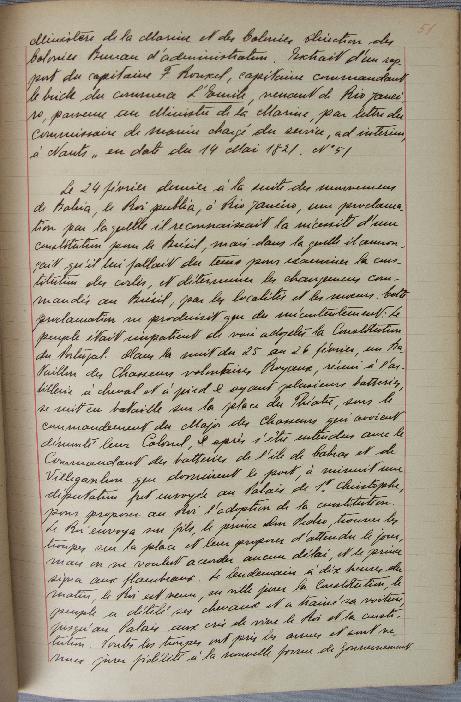 51
Ministère de la Marine et des Colonies Direction des
Colonies Bureau d'administration. Extrait d'un rap
port du capitaine F. Rouxel, capitaine commandant
le brick du commerce L'Emile, venant de Rio Janei
ro, parvenue au Ministre de la Marine, par lettre du
commissaire de marine chargé du service, ad interim,
à Nants, en date du 14 Mai 1821. Nº 51
Le 24 février dernier à la suite des mouvemens
de Bahia, le Roi publia, à Rio Janeiro, une proclama-
tion par laquelle il reconnaissait la nécessité d'une
constitution pour le Brésil, mais dans laquelle il annon-
çait qu'il lui fallait du tems pour examiner la cons-
titution des cortes, et déterminer les changemens com-
mandés au Brésil, par les localités et les moeurs. Cette
proclamation ne produisit que du mécontentement: le
peuple était impatient de voir adopter la Constitution
du Portugal. Dans la nuit du 25 au 26 février, un Ba
taillon des Chasseurs volontaires Royaux, réuni à l'ar-
tillerie à cheval et à pied ayant plusieurs batteries,
se mit en bataille sur la place du Théatre, sous le
commandement du Major des Chasseurs qui avoient
démonté leur Colonel, et après s'être entendus avec le
Commandant des batteries de l'île de Cobras et de
Villegagnon que dominent le port, à minuit une
députation fut envoyée au Palais de St. Christophe,
pour proposer au Roi l'adoption de la constitution.
Le Roi envoya son fils, le prince don Pedro, trouver les
troupes sur la place et leur proposer d'attendre le jour,
mais on ne voulut accorder aucun délai, et le prince
signa aux flambeaux. Le lendemain à dix heures du
matin, le Roi est venu, en ville jurer la Constitution, le
peuple a dételé ses chevaux et a trainé sa voiture
jusqu'au Palais aux cris de vive le Roi et la consti-
tution. Toutes les troupes ont pris les armes et sont ve-
nues jurer fidélité à la nouvelle forme de Gouvernement